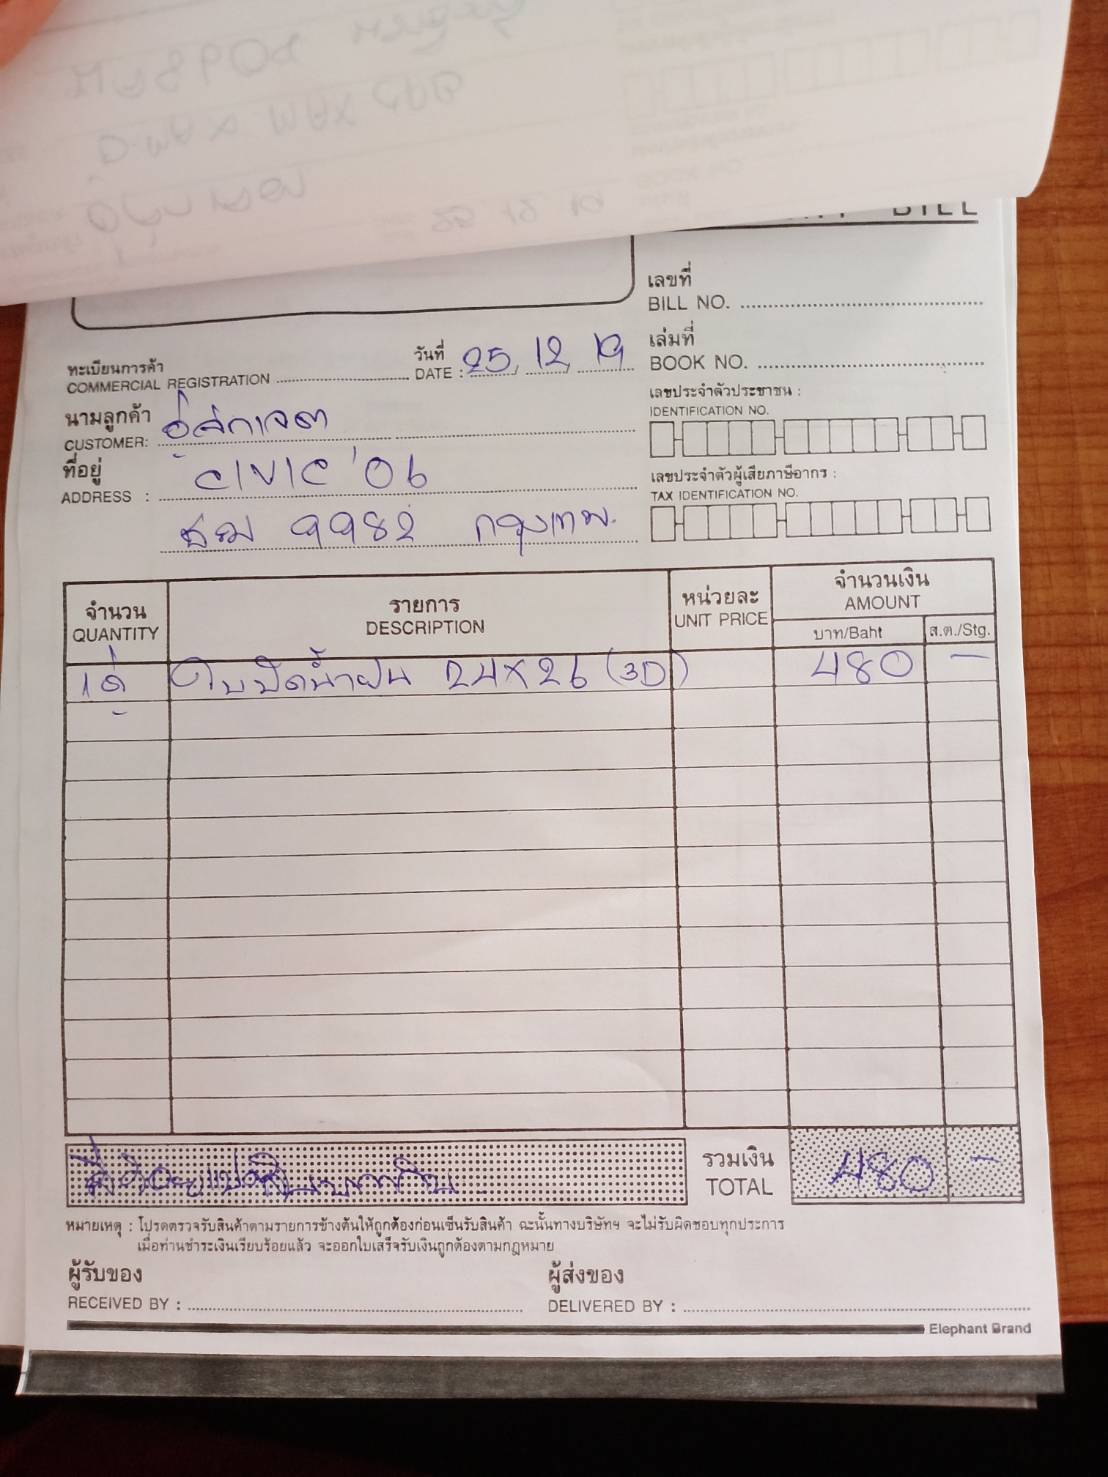 BILL
เลขที่
BILL NO.
เล่มที่
BOOK NO.
ทะเบียนการค้า
COMMERCIAL REGISTRATION
วันที่
DATE : 25, 12, 19
นามลูกค้า
CUSTOMER:
เลขประจำตัวประชาชน :
IDENTIFICATION NO.
ที่อยู่
ADDRESS : CIVIC '06
9982 กรุงเทพ.
เลขประจำตัวผู้เสียภาษีอากร :
TAX IDENTIFICATION NO.
จำนวน
QUANTITY
รายการ
DESCRIPTION
หน่วยละ
UNIT PRICE
จำนวนเงิน
AMOUNT
บาท/Baht
ส.ต./Stg.
1 คู่ ใบปัดน้ำฝน 24x26 (3D) 480 -
สี่ร้อยแปดสิบบาทถ้วน
รวมเงิน
TOTAL
480 -
หมายเหตุ : โปรดตรวจรับสินค้าตามรายการข้างต้นให้ถูกต้องก่อนเซ็นรับสินค้า ฉะนั้นทางบริษัทฯ จะไม่รับผิดชอบทุกประการ
เมื่อท่านชำระเงินเรียบร้อยแล้ว จะออกใบเสร็จรับเงินถูกต้องตามกฎหมาย
ผู้รับของ
RECEIVED BY :
ผู้ส่งของ
DELIVERED BY :
Elephant Brand